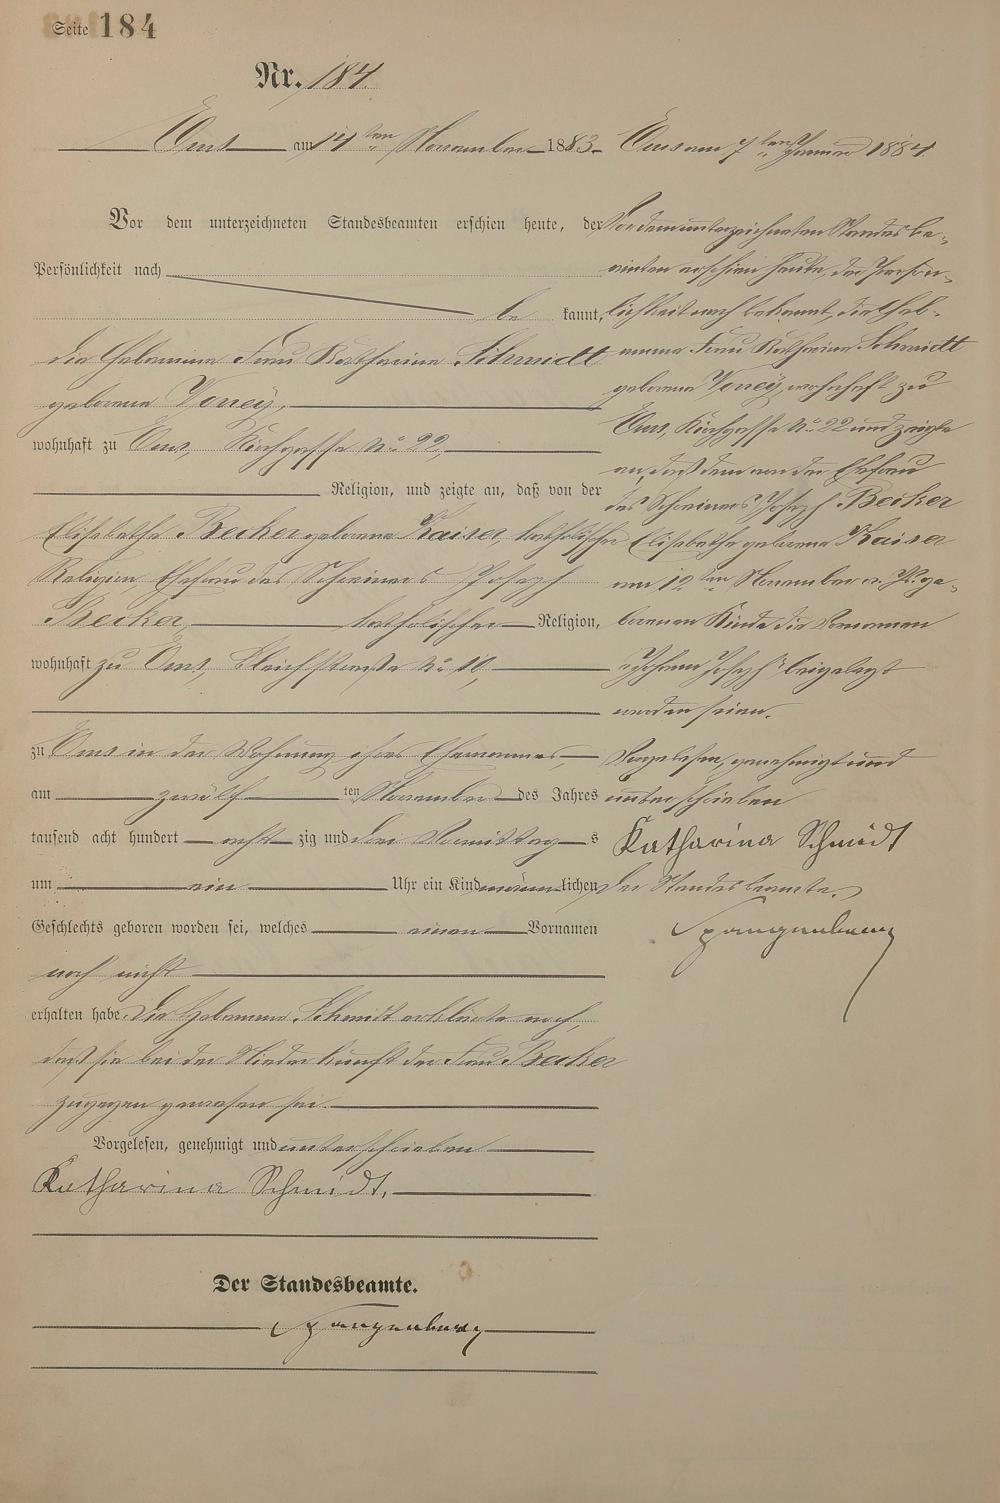 Seite 184
Nr. 184.
Ems am 14ten November 1883.
Vor dem unterzeichneten Standesbeamten erschien heute, der
Persönlichkeit nach
be kannt,
die Hebamme Frau Katharina Schmidt
geborene Vorreÿ,
wohnhaft zu Ems, Kirchgasse No. 22,
Religion, und zeigte an, daß von der
Elisabetha Becker geborene Kaiser, katholischer
Religion, Ehefrau des Schreiners Joseph
Becker, katholischer Religion,
wohnhaft zu Ems, Bleichstraße No. 10,
zu Ems in der Wohnung ihres Ehemannes,
am zwölften November des Jahres
tausend acht hundert acht zig und drei Vormittags
um ein Uhr ein Kind männlichen
Geschlechts geboren worden sei, welches einen Vornamen
noch nicht
erhalten habe. Die Hebamme Schmidt erklärte noch,
daß sie bei der Niederkunft der Frau Becker
zugegen gewesen sei.
Vorgelesen, genehmigt und unterschrieben
Katharina Schmidt.
Der Standesbeamte.
Spangenberg
Ems am 7ten Januar 1884.
Vor dem unterzeichneten Standesbe-
amten erschien heute, der Persön-
lichkeit nach bekannt, die Heb-
amme Frau Katharina Schmidt
geborene Vorreÿ, wohnhaft zu
Ems, Kirchgasse No. 22 und zeigte
an, daß dem von der Ehefrau
des Schreiners Joseph Becker
Elisabetha geborene Kaiser
am 12ten November v. Js. ge-
borenen Kinde die Vornamen
"Johann Joseph" beigelegt
worden seien.
Vorgelesen, genehmigt und
unterschrieben
Katharina Schmidt
Der Standesbeamte.
Spangenberg